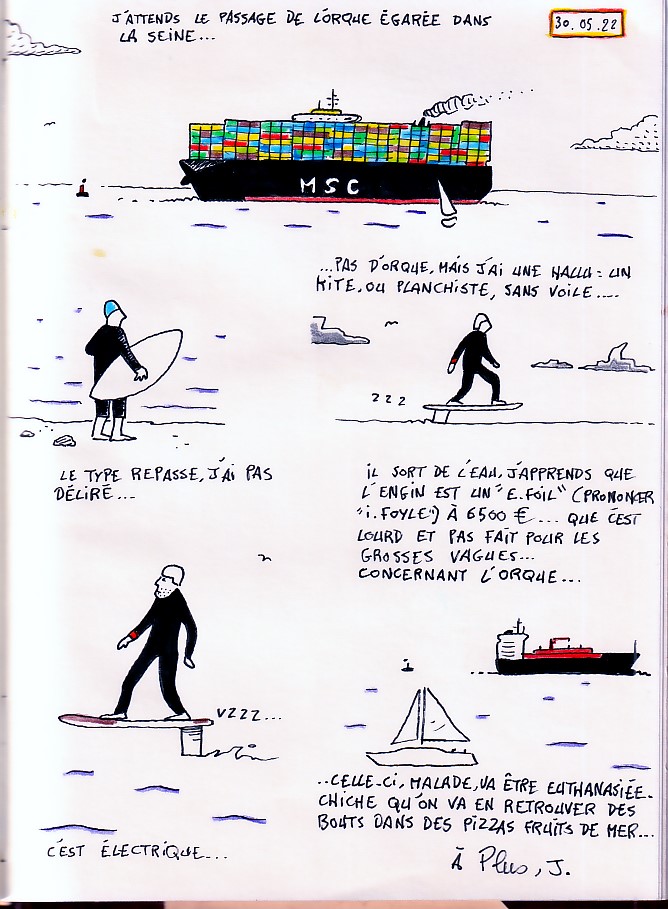 J'ATTENDS LE PASSAGE DE L'ORQUE ÉGARÉE DANS
LA SEINE...
30.05.22
MSC
...PAS D'ORQUE, MAIS J'AI UNE HALLU : UN
KITE, OU PLANCHISTE, SANS VOILE.....
ZZZ
LE TYPE REPASSE, J'AI PAS
DÉLIRÉ...
IL SORT DE L'EAU, J'APPRENDS QUE
L'ENGIN EST UN "E.FOIL" (PRONONCER
"i.FOYLE") À 6500 €... QUE C'EST
LOURD ET PAS FAIT POUR LES
GROSSES VAGUES...
CONCERNANT L'ORQUE...
VZZZ...
C'EST ÉLECTRIQUE...
..CELLE-CI, MALADE, VA ÊTRE EUTHANASIÉE.
CHICHE QU'ON VA EN RETROUVER DES
BOUTS DANS DES PIZZAS FRUITS DE MER...
À Plus, J.